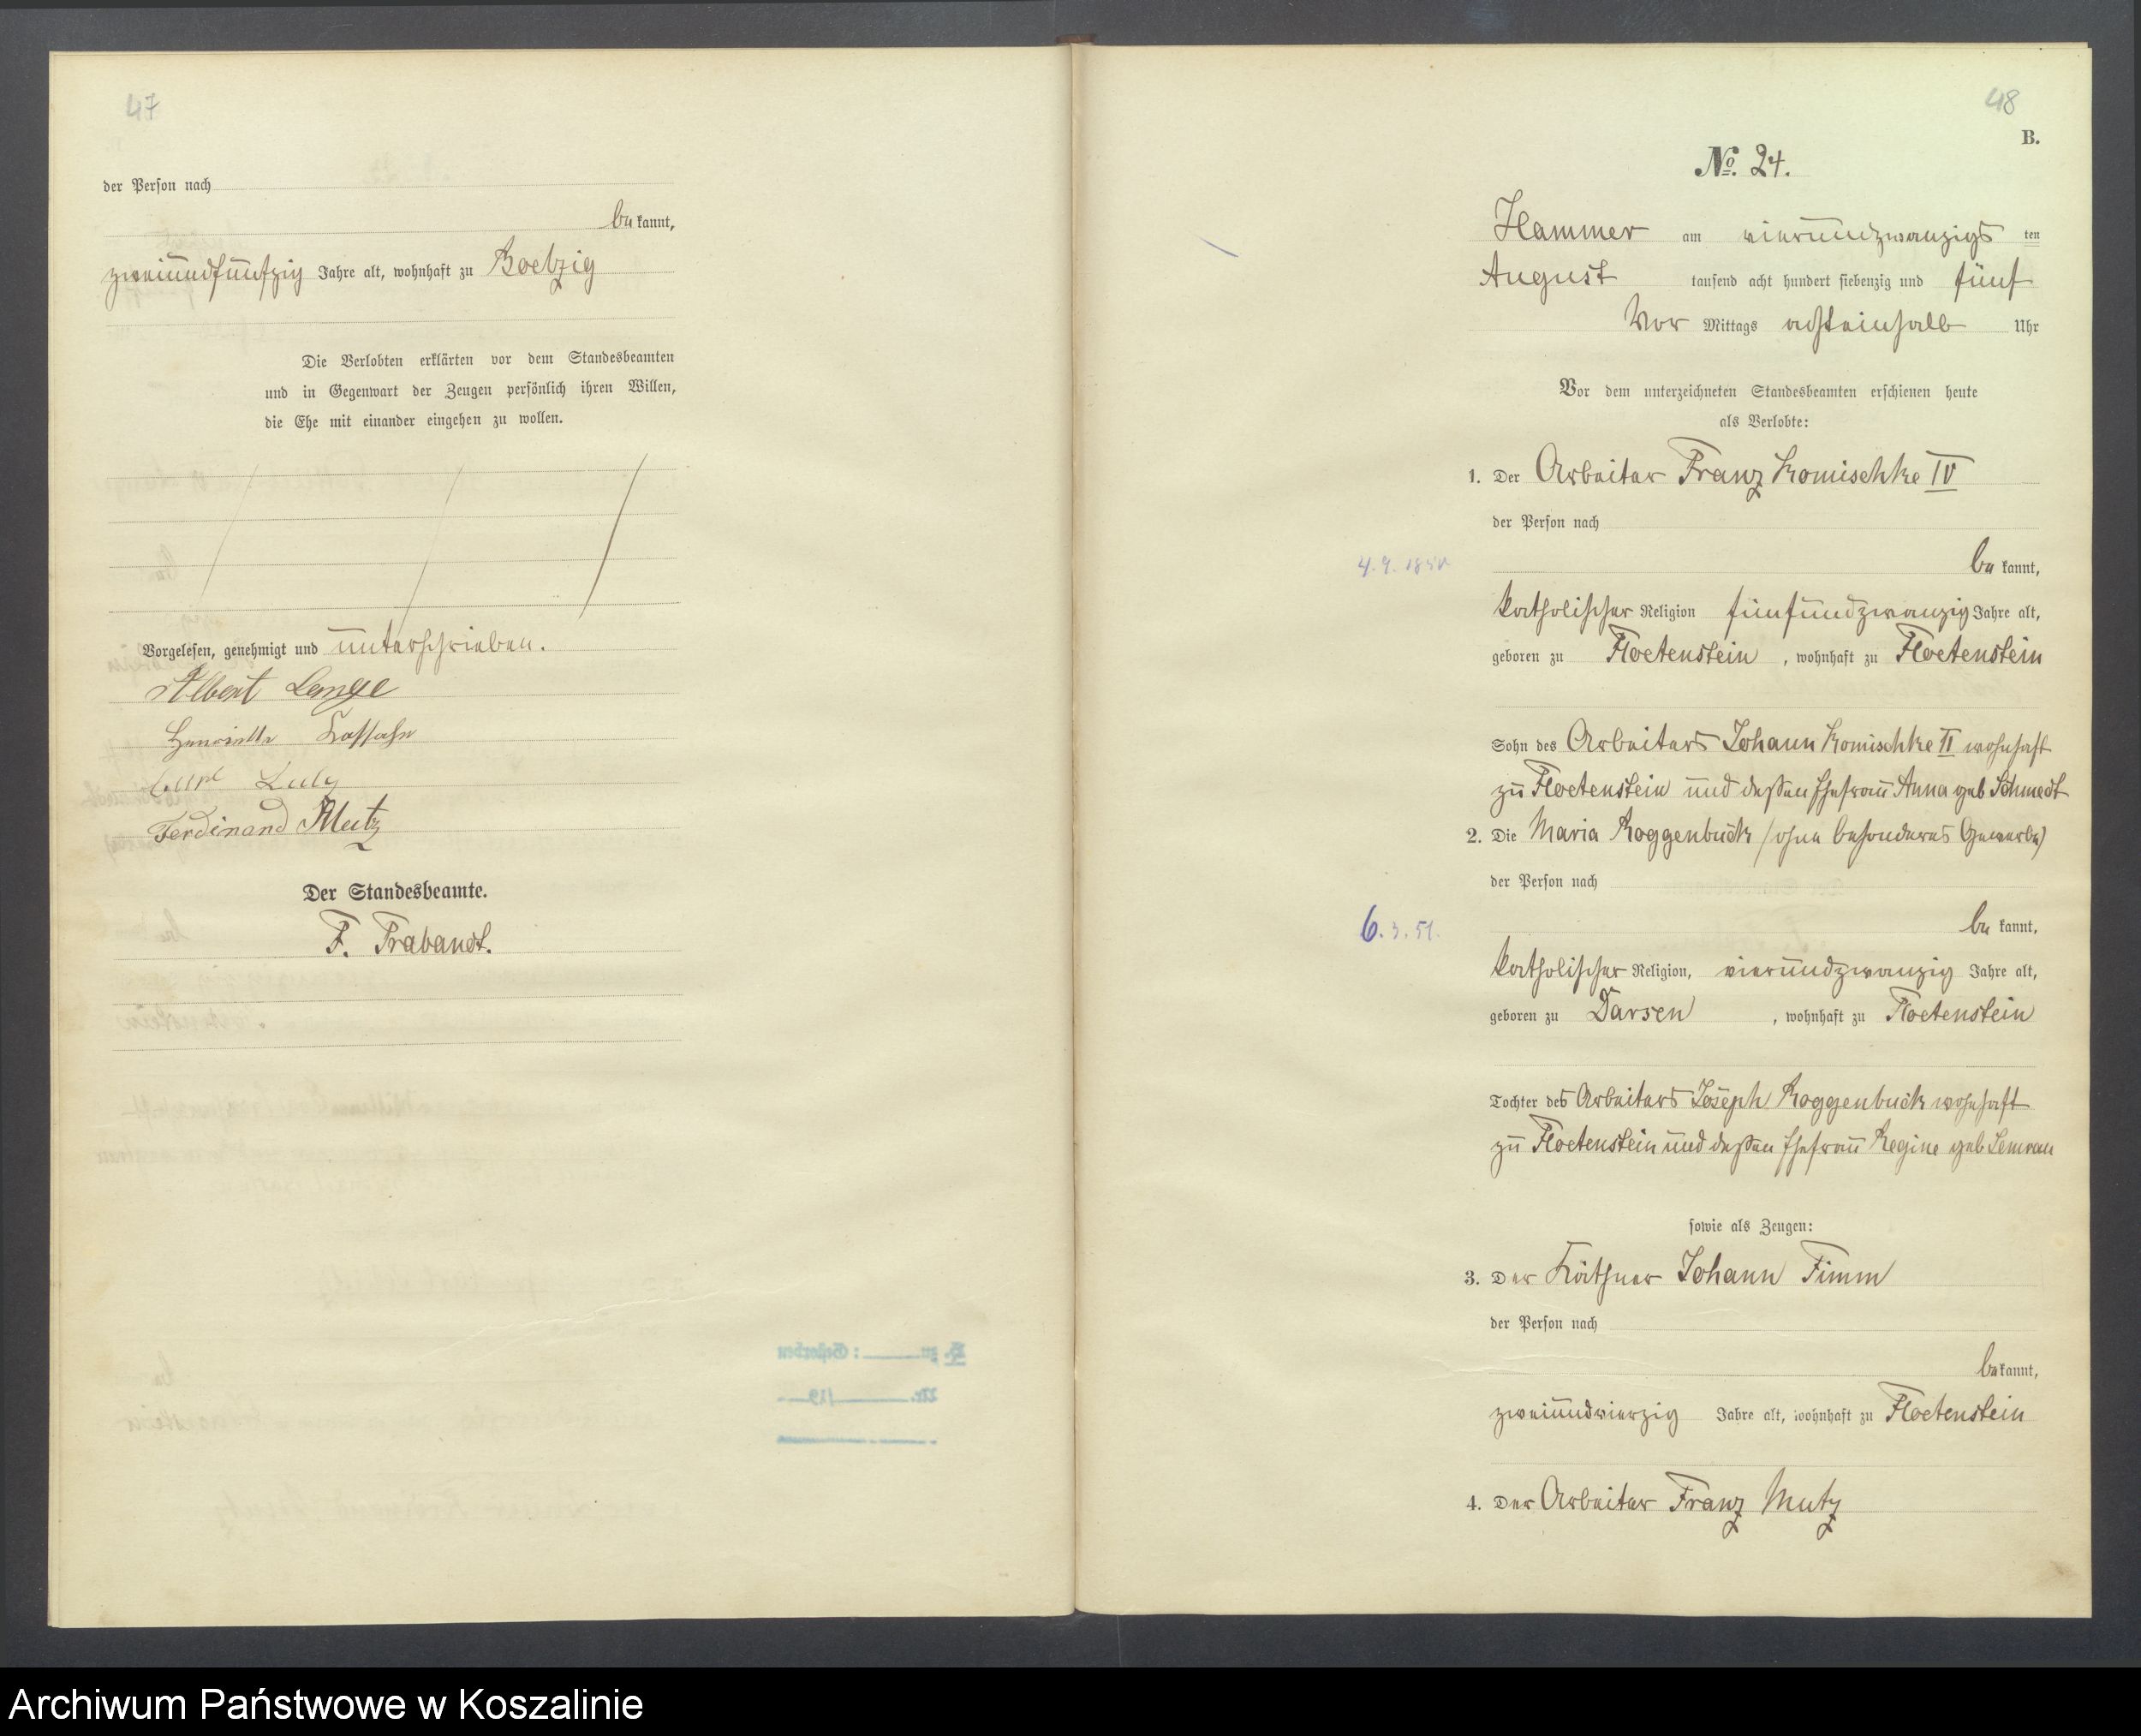 47
der Person nach
be kannt,
zweiundfünfzig Jahre alt, wohnhaft zu Boelzig
Die Verlobten erklärten vor dem Standesbeamten
und in Gegenwart der Zeugen persönlich ihren Willen,
die Ehe mit einander eingehen zu wollen.
Vorgelesen, genehmigt und unterschrieben.
Albert Lange
Henriette
Carl
Ferdinand Mutz
Der Standesbeamte.
F. Trabandt.
48
B.
No. 24.
Hammer am vierundzwanzigs ten
August tausend acht hundert siebenzig und fünf
Vor Mittags achteinhalb Uhr
Vor dem unterzeichneten Standesbeamten erschienen heute
als Verlobte:
1. Der Arbeiter Franz Komischke IV
der Person nach
4. 9. 1850
be kannt,
katholischer Religion fünfundzwanzig Jahre alt,
geboren zu Floetenstein, wohnhaft zu Floetenstein
Sohn des Arbeiters Johann Komischke II wohnhaft
zu Floetenstein und dessen Ehefrau Anna geb Schmedt
2. Die Maria Roggenbuck (ohne besonderes Gewerbe)
der Person nach
6. 3. 51.
be kannt,
katholischer Religion, vierundzwanzig Jahre alt,
geboren zu Darsen, wohnhaft zu Floetenstein
Tochter des Arbeiters Joseph Roggenbuck wohnhaft
zu Floetenstein und dessen Ehefrau Regine geb Semrau
sowie als Zeugen:
3. Der Käthner Johann Timm
der Person nach
be kannt,
zweiundvierzig Jahre alt, wohnhaft zu Floetenstein
4. Der Arbeiter Franz Mutz
Archiwum Państwowe w Koszalinie